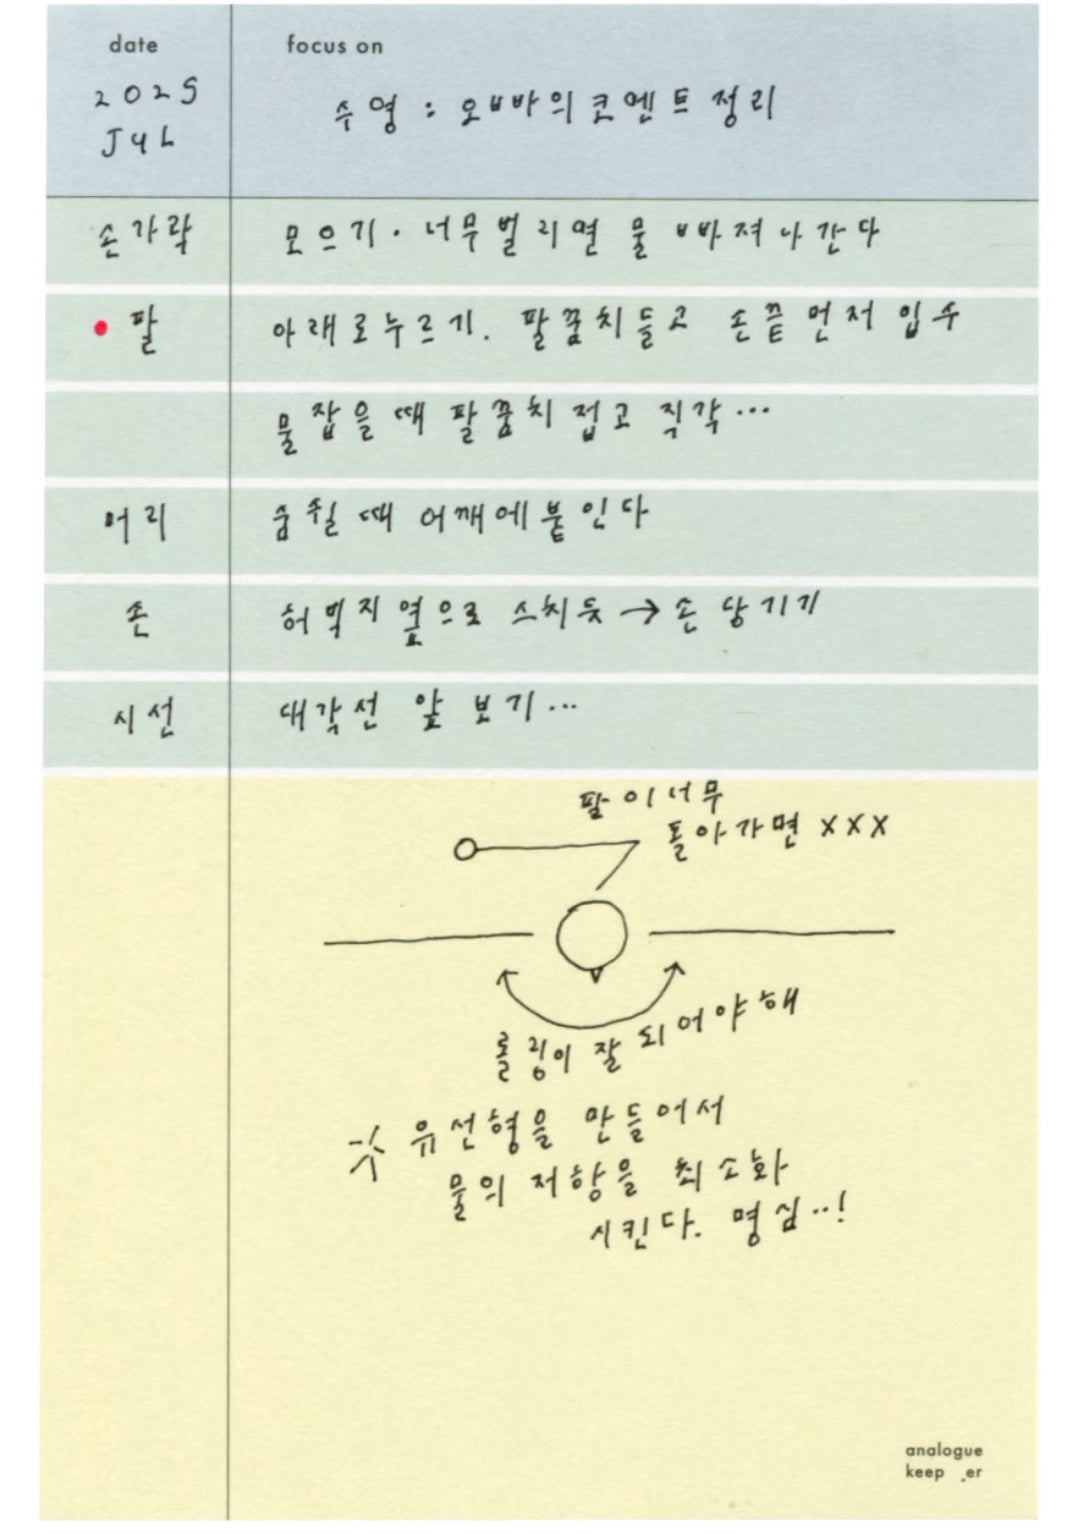 date
focus on
2025
JUL
수영 : 오빠의 코멘트 정리
손가락 모으기. 너무 벌리면 물 빠져나간다
팔 아래로 누르기. 팔꿈치 들고 손끝 먼저 입수
물 잡을 때 팔꿈치 접고 직각...
머리 숨 쉴 때 어깨에 붙인다
손 허벅지 옆으로 스치듯 → 손 당기기
시선 대각선 앞 보기...
팔이 너무
돌아가면 XXX
롤링이 잘 되어야 해
유선형을 만들어서
물의 저항을 최소화
시킨다. 명심..!
analogue
keep_er